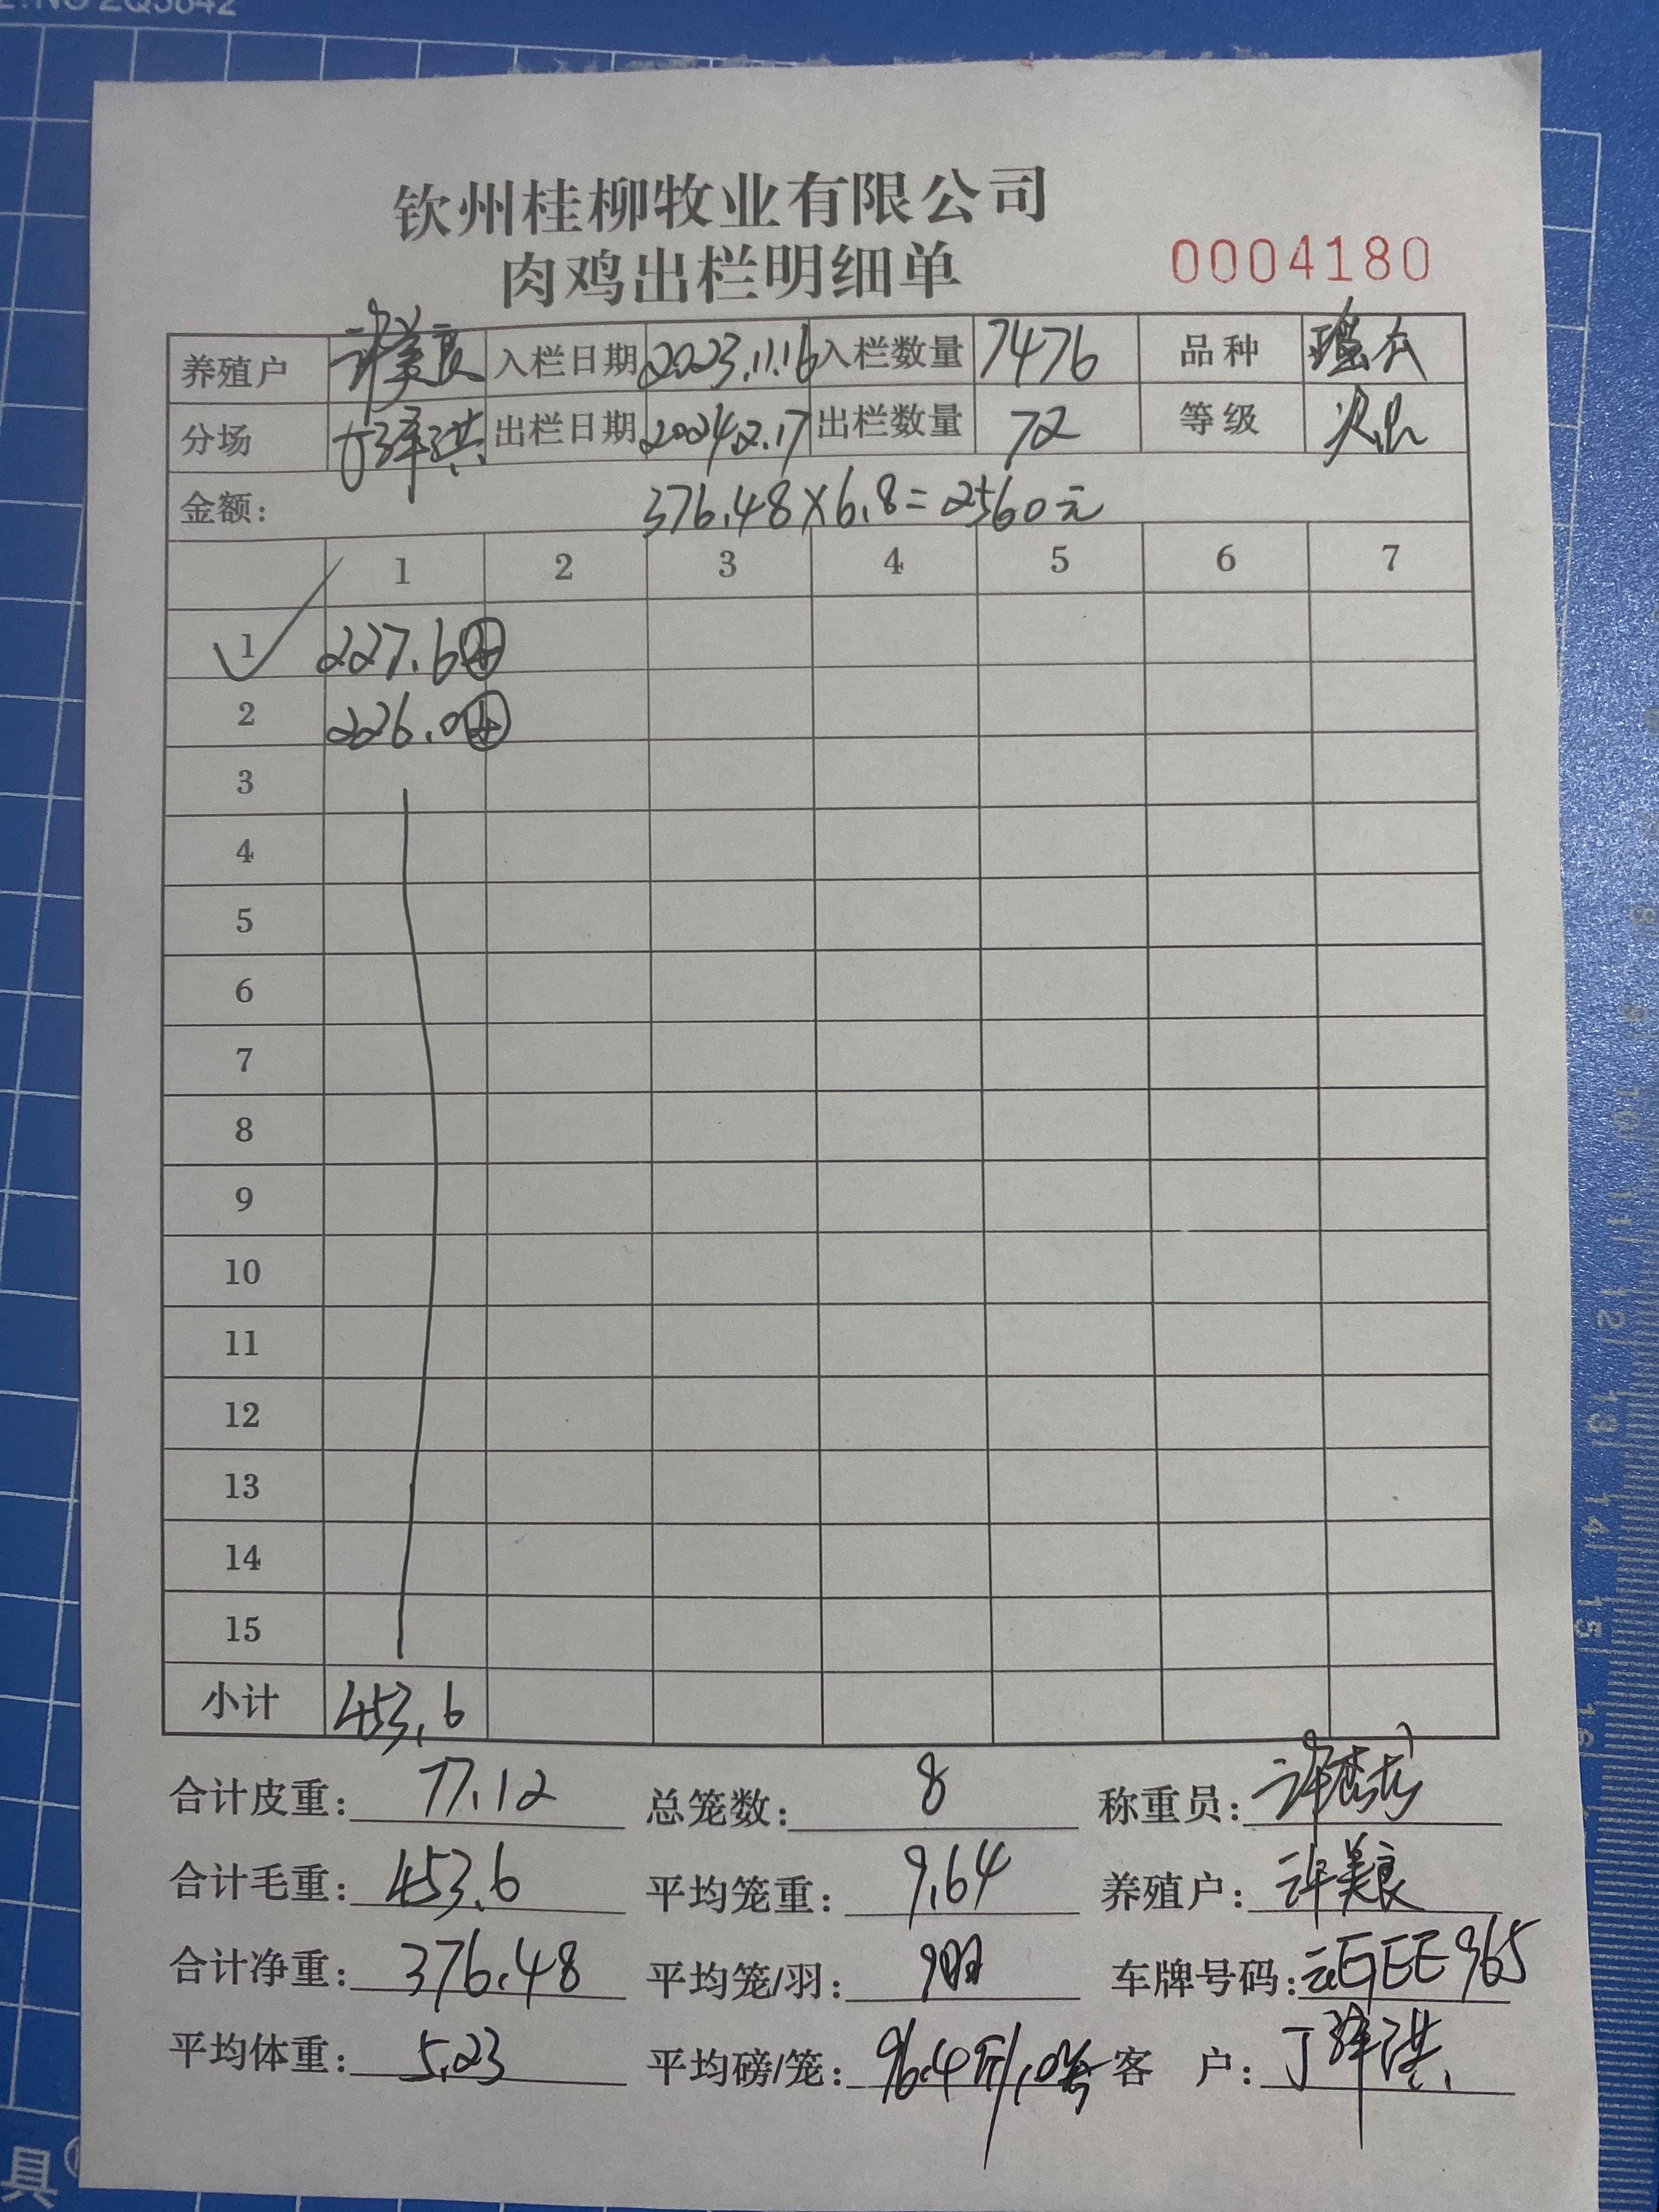 钦州桂柳牧业有限公司
肉鸡出栏明细单 0004180
养殖户 许美良 入栏日期 2023.11.16 入栏数量 7476 品种
分场 出栏日期 2024.2.17 出栏数量 72 等级 次品
金额: 376.48×6.8=2560元
1 2 3 4 5 6 7
1 227.6 ④
2 226.0 ④
3
4
5
6
7
8
9
10
11
12
13
14
15
小计 453.6
合计皮重: 77.12 总笼数: 8 称重员:
合计毛重: 453.6 平均笼重: 9.64 养殖户: 许美良
合计净重: 376.48 平均笼/羽: 9羽 车牌号码: 云EEE965
平均体重: 5.23 平均磅/笼: 96.4斤/10笼 客 户: